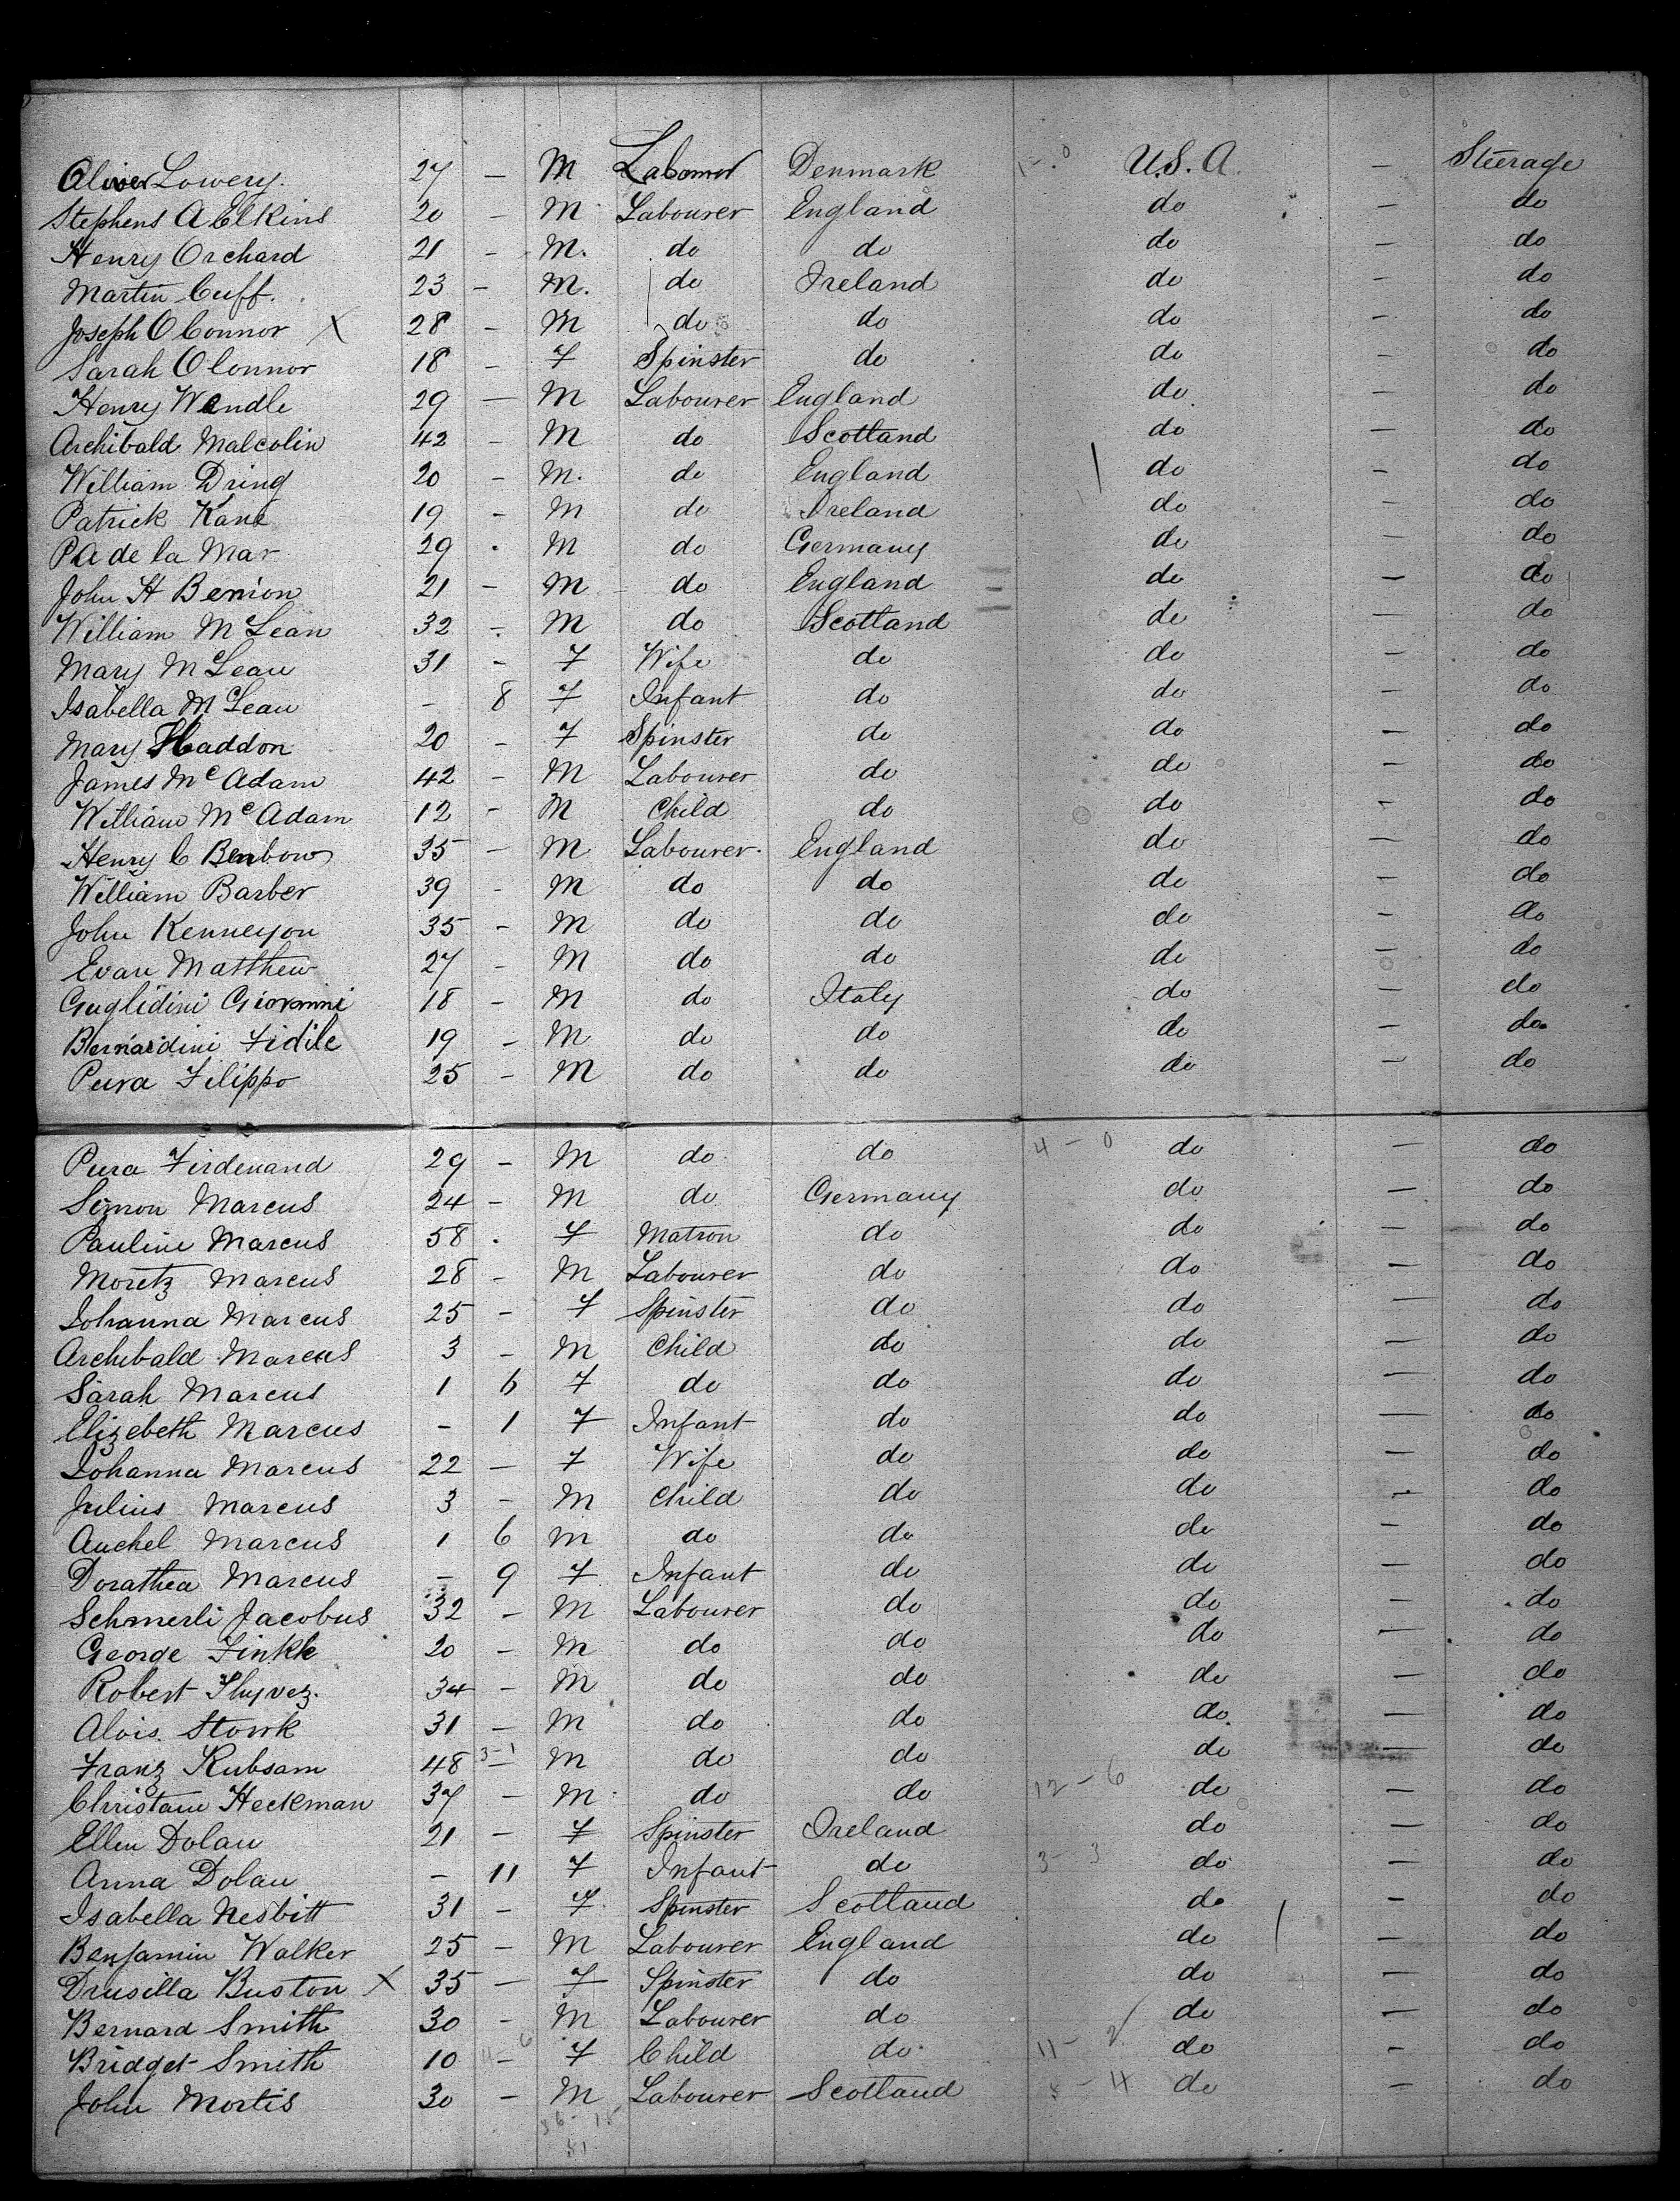 Oliver Lowery. 27 — M Labourer Denmark 1-0 U.S.A. — Steerage
Stephens A Elkins 20 - M Labourer England do — do
Henry Orchard 21 - M. do do do — do
Martin Cuff. 23 - M. do Ireland do — do
Joseph O Connor X 28 - M do do do - do
Sarah O Connor 18 - F Spinster do do - do
Henry Wendle 29 — M Labourer England do. — do
Archibald Malcolm 42 - M do Scotland do — do
William Dring 20 - M. do England do - do
Patrick Kane 19 - M do Ireland do — do
P A de la Mar 29 . M do Germany do — do
John H Benion 21 - M do England do — do
William McLean 32 - M do Scotland do — do
Mary McLean 31 - F Wife do do — do
Isabella McLean - 8 F Infant do do — do
Mary Haddon 20 - F Spinster do do — do
James McAdam 42 - M Labourer do do — do
William McAdam 12 - M Child do do - do
Henry C Benbow 35 - M Labourer. England do — do
William Barber 39 - M do do do — do
John Kenneyon 35 - M do do do - do
Evan Matthew 27 - M do do do — do
Guglidini Giovanni 18 - M do Italy do — do
Bernardini Fidile 19 - M do do do — do.
Pura Filippo 25 - M do do do — do
Pura Firdenand 29 - M do do 4-0 do — do
Simon Marcus 24 - M do Germany do — do
Pauline Marcus 58 . F Matron do do — do
Moritz Marcus 28 - M Labourer do do — do
Johanna Marcus 25 - F Spinster do do — do
Archibald Marcus 3 - M Child do do — do
Sarah Marcus 1 6 F do do do — do
Elizebeth Marcus - 1 F Infant do do — do
Johanna Marcus 22 — F Wife do do — do
Julius Marcus 3 - M Child do do - do
Auchel Marcus 1 6 M do do do — do
Dorathea Marcus - 9 F Infant do do — do
Schmerli Jacobus 32 - M Labourer do do — do
George Finkle 20 - M do do do — do
Robert 34 - M do do do — do
Alois. Stork 31 - M do do do. — do
Franz Rubsam 48 3-1 - M do do do — do
Christane Heckman 37 - M. do do 12-6 do — do
Ellen Dolan 21 — F Spinster Ireland do — do
Anna Dolan - 11 F Infant do 3-3 do — do
Isabella Nesbitt 31 - F. Spinster Scotland do - do
Benjamin Walker 25 - M Labourer England do — do
Drusilla Buston X 35 — F Spinster do do — do
Bernard Smith 30 — M Labourer do do — do
Bridget Smith 10 - F Child do. 11-2 do - do
John Mortis 30 - M Labourer Scotland 8-4 do — do
36-15
51